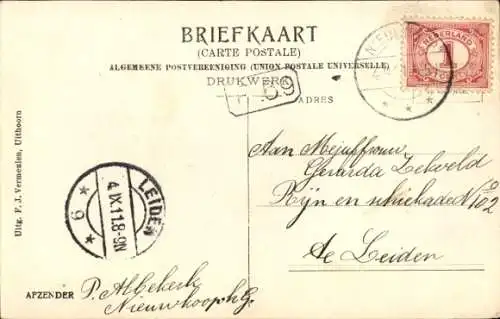 BRIEFKAART
(CARTE POSTALE)
ALGEMEENE POSTVEREENIGING (UNION POSTALE UNIVERSELLE)
DRUKWERK
ADRES
NEDERLAND
1
Aan Mejuffrouw
Gerarda Zelveld
Rijn en schiekade No
102
te Leiden
LEIDEN
4.IX.11.8-9N
* 6 *
Uitg. F. J. Vermeulen, Uithoorn
AFZENDER P. Albekerk
Nieuwkoop h.G.